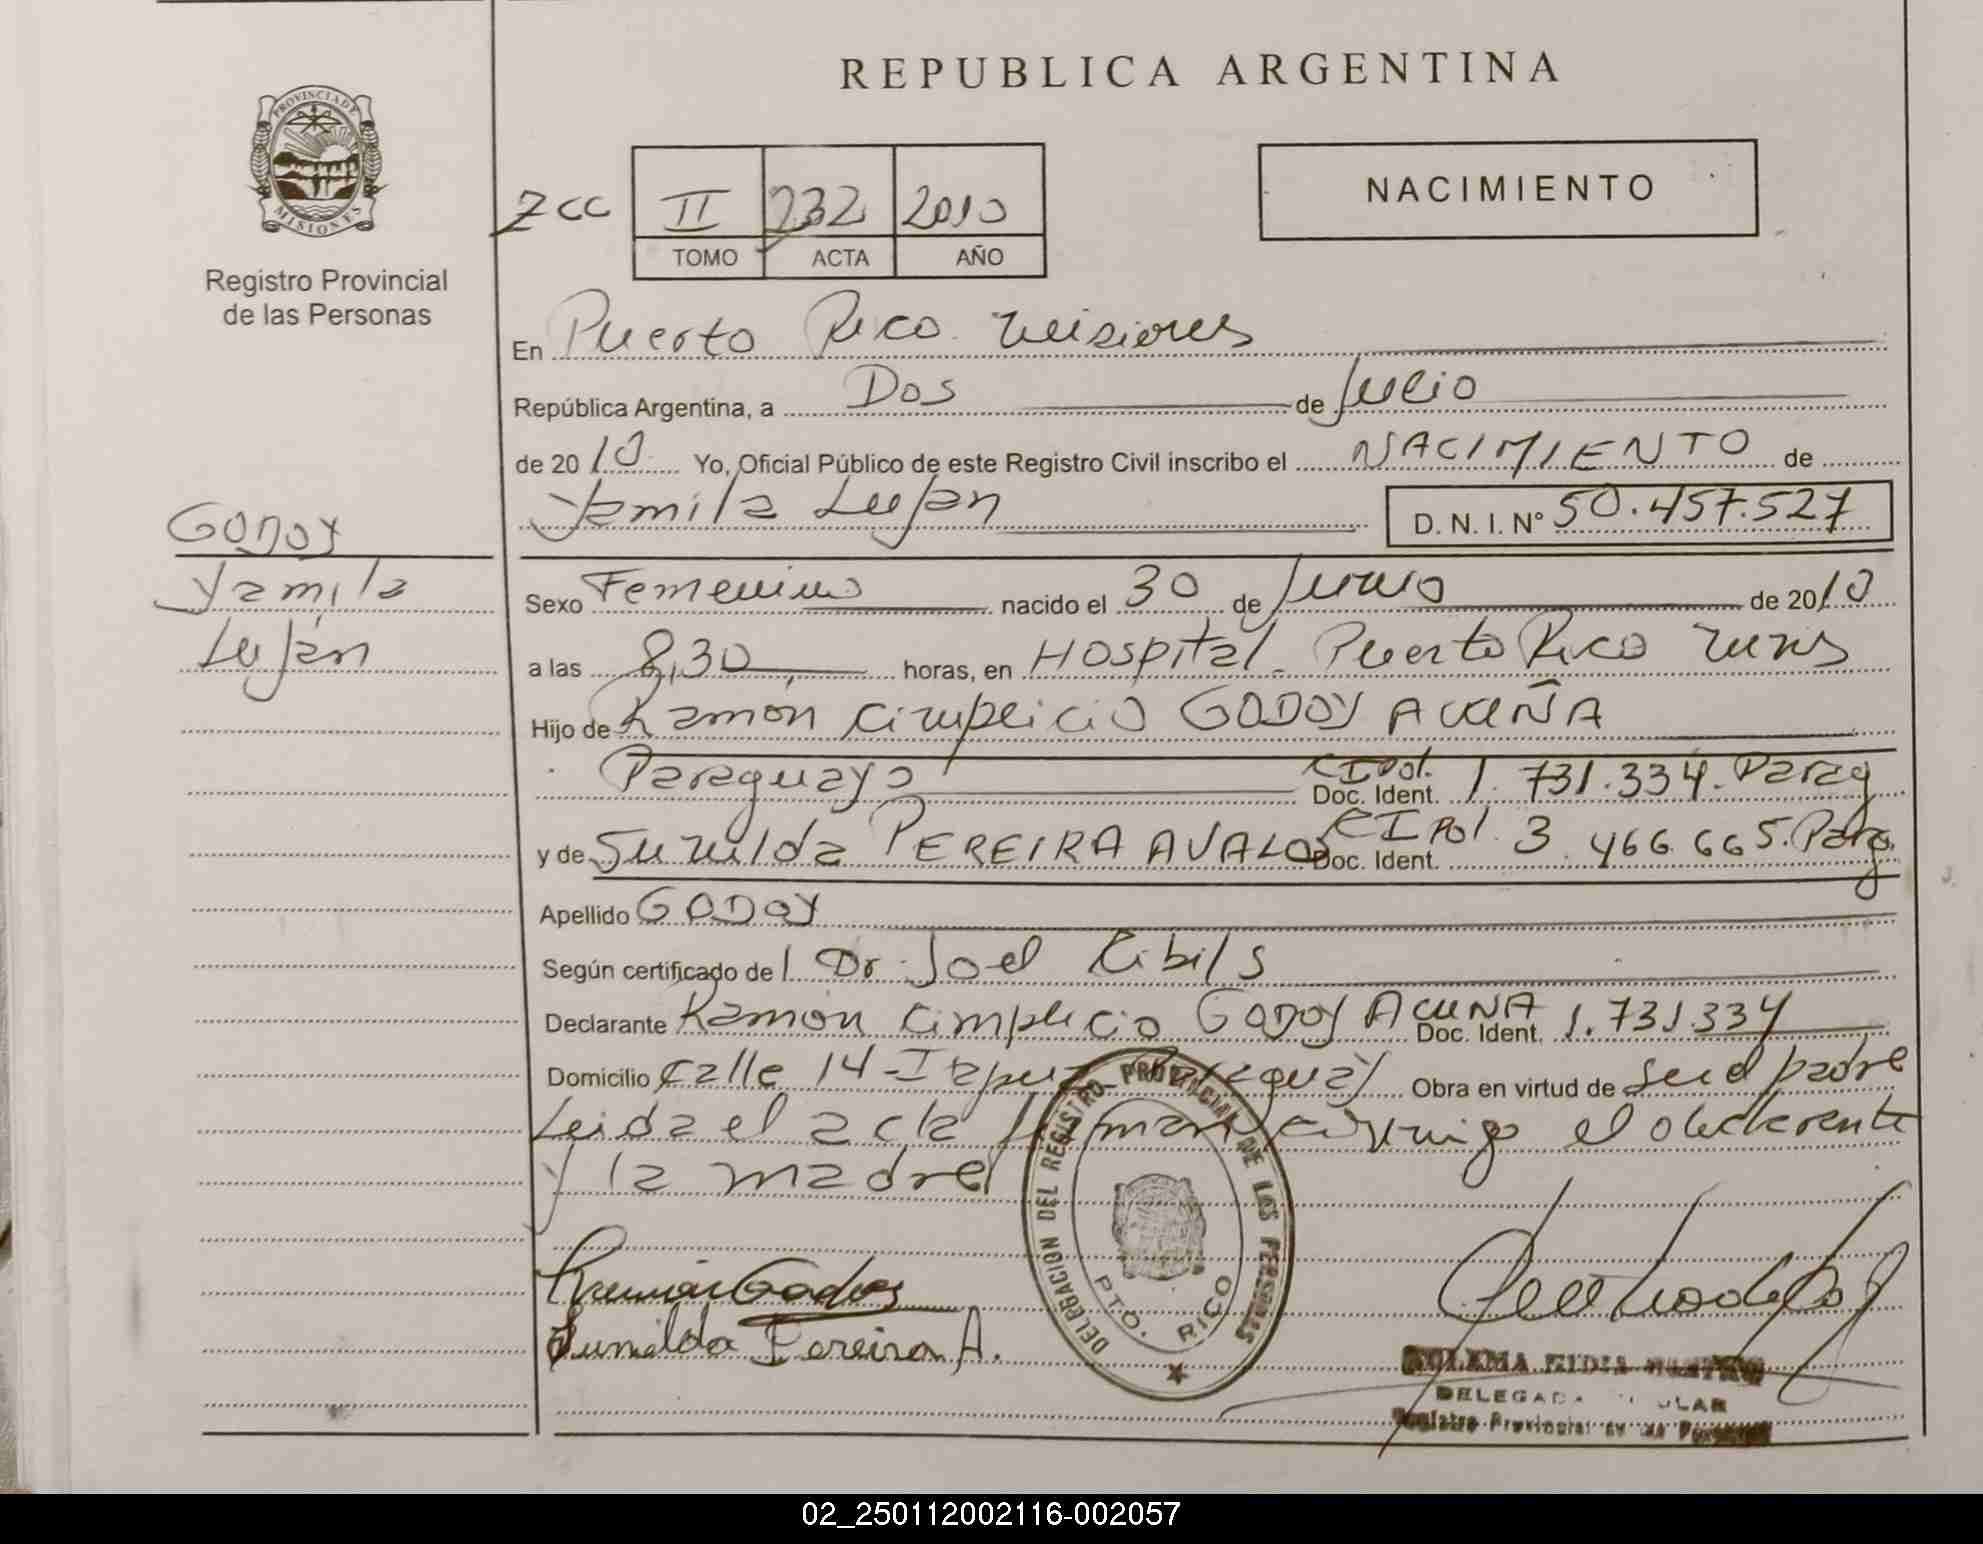 REPUBLICA ARGENTINA
PROVINCIA DE MISIONES
Registro Provincial
de las Personas
NACIMIENTO
ZCC II 232 2010
TOMO ACTA AÑO
En Puerto Rico Misiones
República Argentina, a Dos de Julio
de 2010 Yo, Oficial Público de este Registro Civil inscribo el NACIMIENTO de
Yamila Luján D. N. I. N° 50.457.527
GODOY
Yamila
Luján
Sexo Femenino nacido el 30 de Junio de 2010
a las 8,30 horas, en Hospital Puerto Rico Mnes
Hijo de Ramón Cimplicio GODOY ACUÑA
Paraguayo CI Pol. Doc. Ident. 1.731.334. Parag
y de Sunilda PEREIRA AVALOS CI Pol. Doc. Ident. 3.466.665. Parg.
Apellido GODOY
Según certificado de l Dr. Joel Ribils
Declarante Ramón Cimplicio GODOY ACUNA Doc. Ident. 1.731.334
Domicilio Calle 14 - Itapua Paraguay Obra en virtud de ser el padre
Leida el acta firman conmigo el declarante
y la madre
Ramón Godoy
Sunilda Pereira A.
DELEGACION DEL REGISTRO PROVINCIAL DE LAS PERSONAS
PTO. RICO
DELEGADA
Registro Provincial de las Personas
02_250112002116-002057